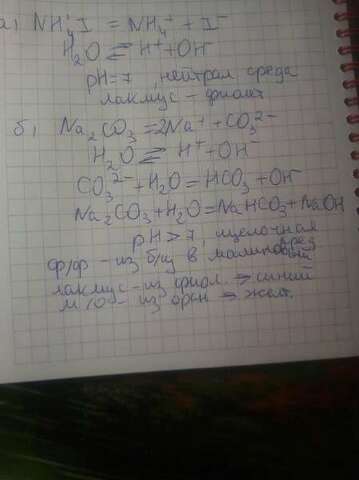 а) NH₄I = NH₄⁺ + I⁻
H₂O ⇄ H⁺ + OH⁻
pH = 7, нейтрал среда
лакмус – фиолет
б) Na₂CO₃ = 2Na⁺ + CO₃²⁻
H₂O ⇄ H⁺ + OH⁻
CO₃²⁻ + H₂O = HCO₃ + OH⁻
Na₂CO₃ + H₂O = NaHCO₃ + NaOH
pH > 7, щелочная сред
ф/ф – из б/ц в малиновый
лакмус – из фиол. → синий
м/о – из оран → желт.